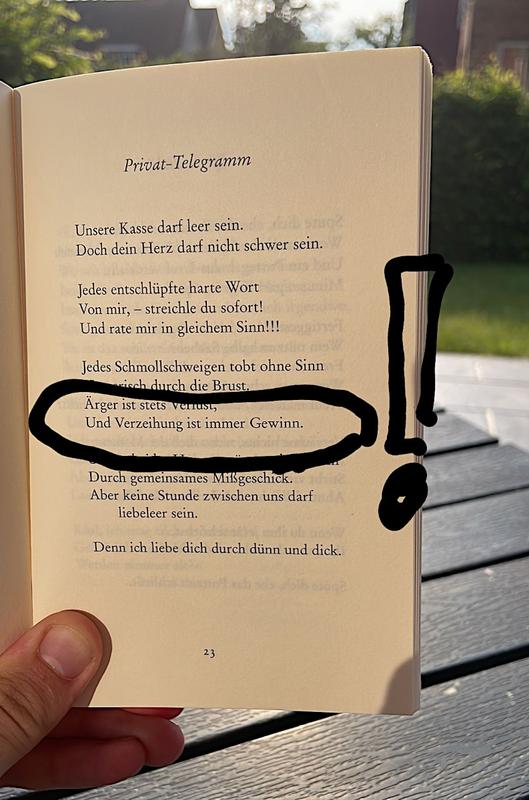 Privat-Telegramm
Unsere Kasse darf leer sein.
Doch dein Herz darf nicht schwer sein.
Jedes entschlüpfte harte Wort
Von mir, – streichle du sofort!
Und rate mir in gleichem Sinn!!!
Jedes Schmollschweigen tobt ohne Sinn
durch die Brust.
Ärger ist stets Verlust,
Und Verzeihung ist immer Gewinn.
Durch gemeinsames Mißgeschick.
Aber keine Stunde zwischen uns darf
liebeleer sein.
Denn ich liebe dich durch dünn und dick.
23